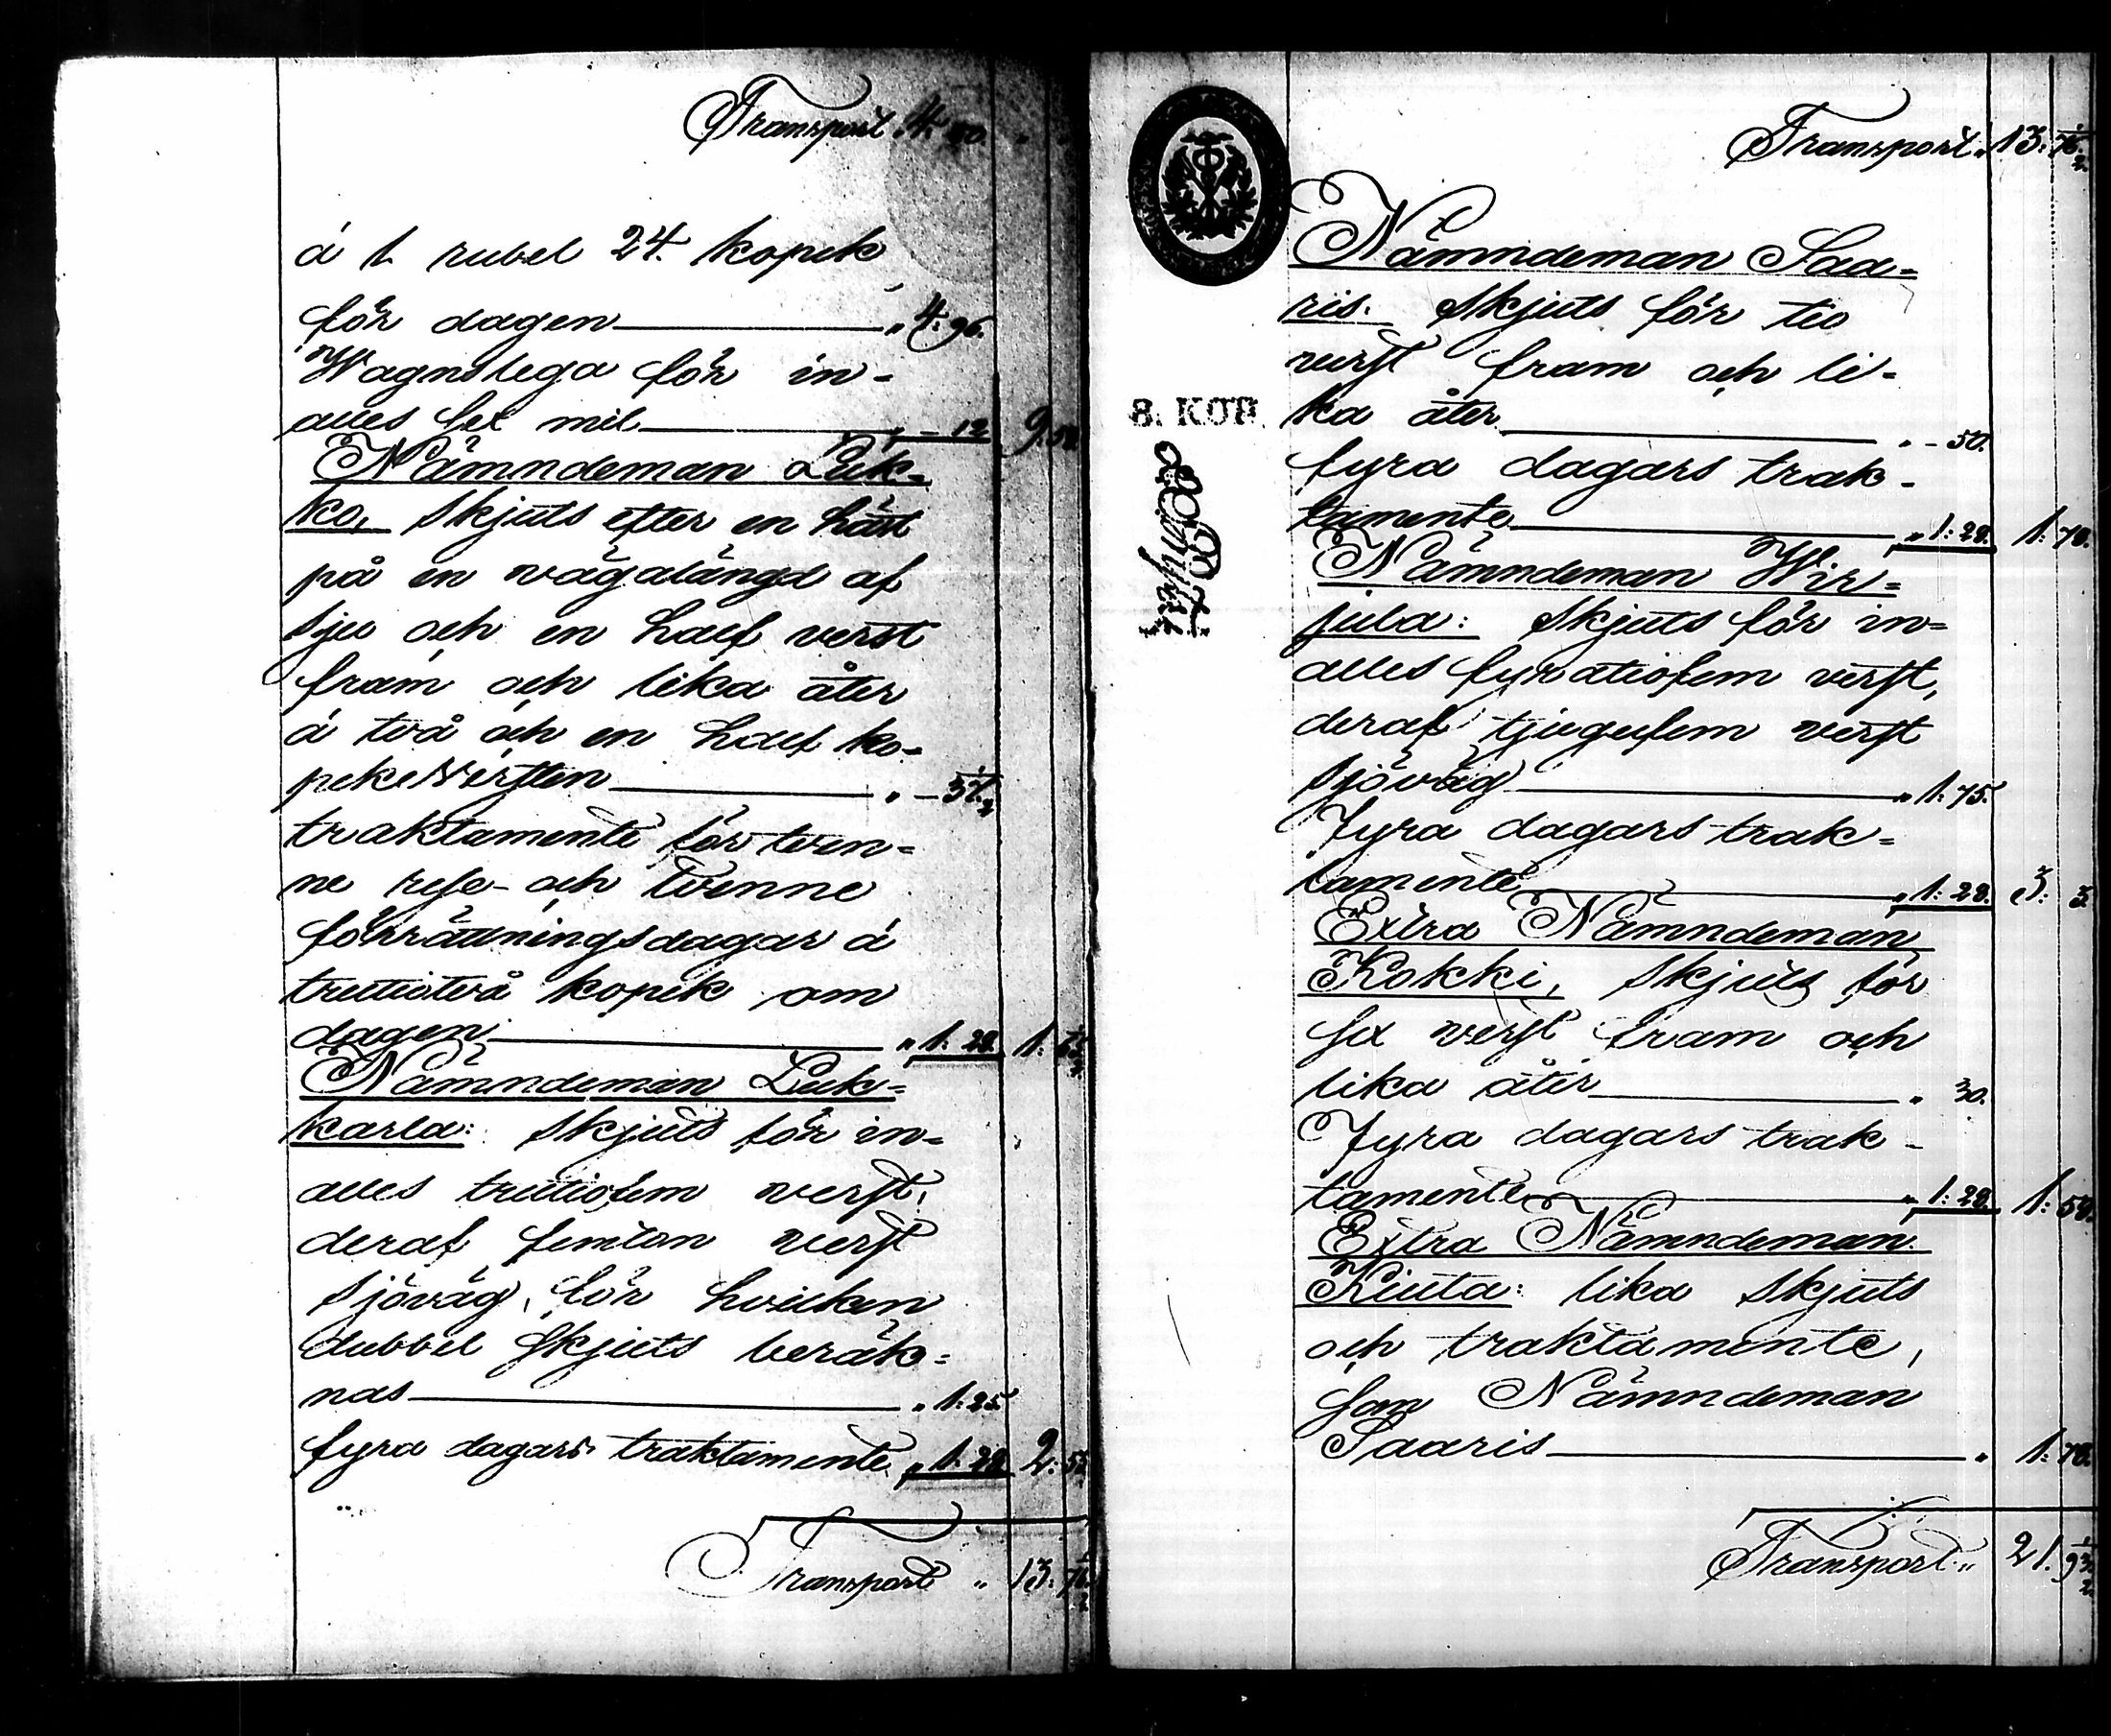 Transport 4. 50. " "
á 1 rubel 24. kopek
för dagen " 4. 96.
Wagnslega för in-
alles sex mil " – 12 9. 58
Nämndeman Luk-
ko, Skjuts efter en häst
på en vägalängd af
sju och en half verst
fram och lika åter
á två och en half ko-
pek Wersten " – 37 1/2
traktamente för tven-
ne rese- och tvenne
förrättningsdagar á
trettiotvå kopek om
dagen " 1. 28. 1. 65 1/2
Nämndeman Luk-
karla: Skjuts för in-
alles trettiofem verst,
deraf femton verst
sjöväg, för hvilken
dubbel skjuts beräk-
nas " 1. 25.
fyra dagars traktamente " 1. 28 2. 53.
Transport " 13. 76 1/2
8. KOP.
Transport " 13. 76 1/2
Nämndeman Saa-
ris. Skjuts för tio
verst fram och li-
ka åter " – 50.
fyra dagars trak-
tamente " 1. 28. 1. 78.
Nämndeman Wir-
jula: Skjuts för in-
alles fyratiofem verst,
deraf tjugufem verst
sjöväg " 1. 75.
Fyra dagars trak-
tamente " 1. 28. 3. 3.
Extra Nämndeman
Kokki, Skjuts för
sex verst fram och
lika åter " 30.
Fyra dagars trak-
tamente " 1: 28. 1: 58.
Extra Nämndeman
Kiuta: lika skjuts
och traktamente,
som Nämndeman
Saaris " 1. 78.
Transport " 21. 93 1/2